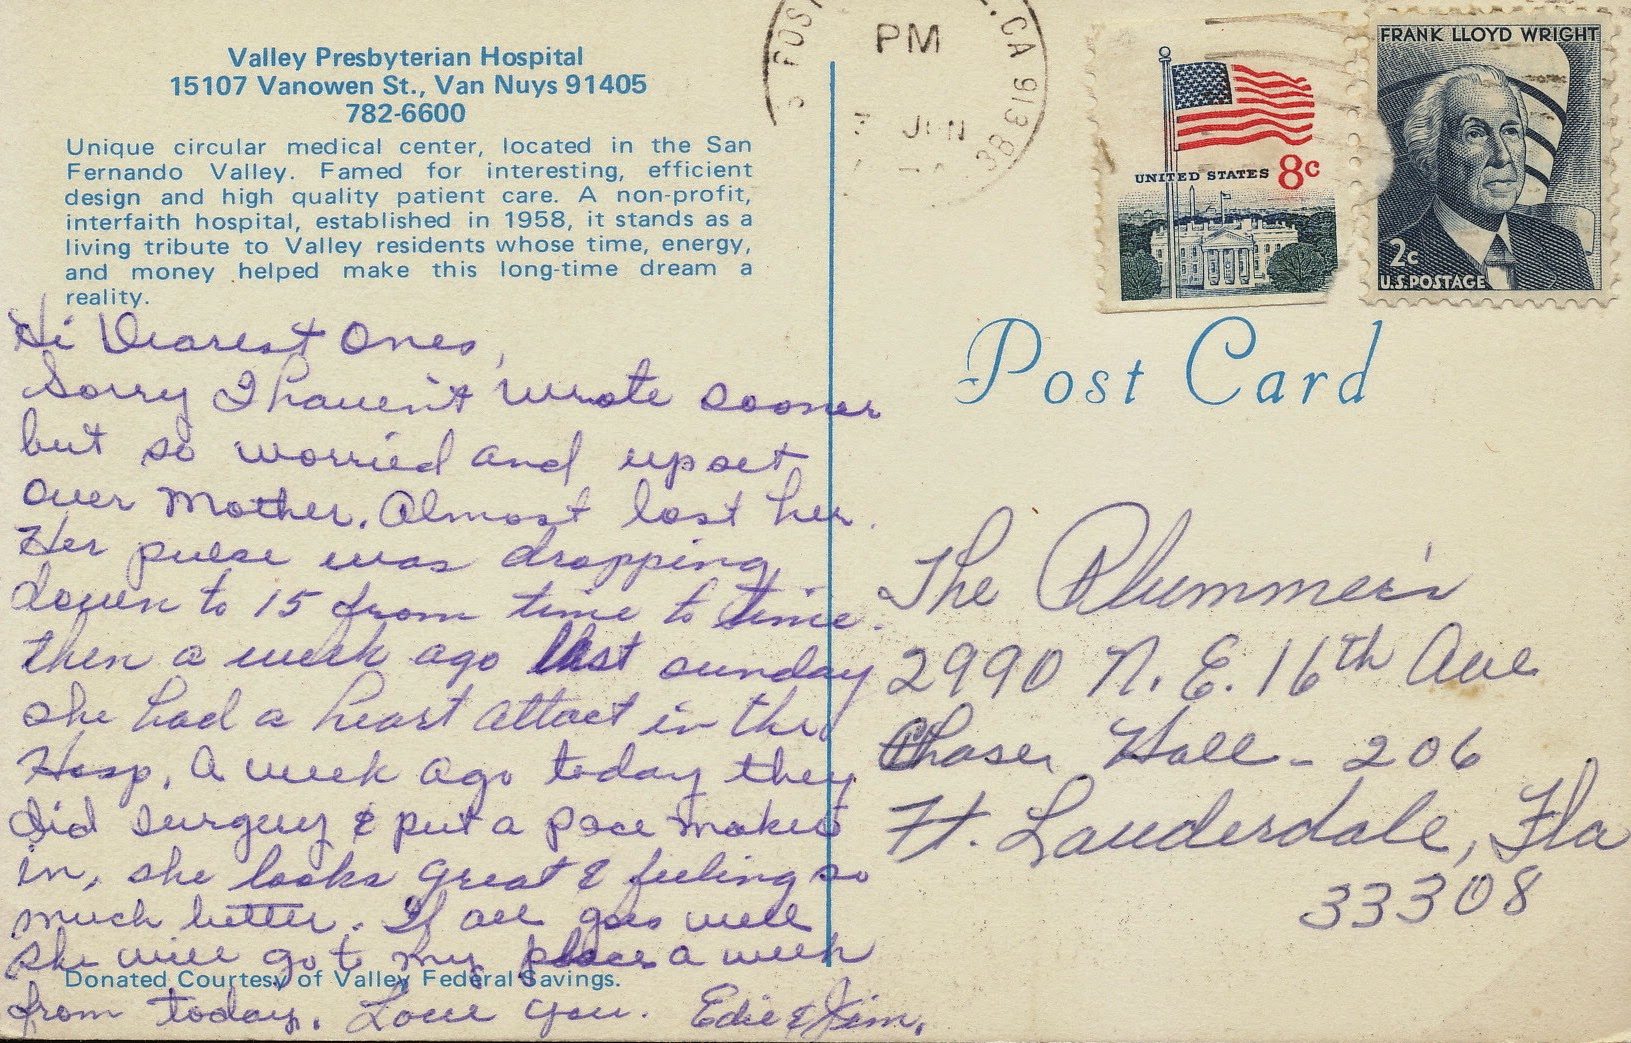 Valley Presbyterian Hospital
15107 Vanowen St., Van Nuys 91405
782-6600
Unique circular medical center, located in the San
Fernando Valley. Famed for interesting, efficient
design and high quality patient care. A non-profit,
interfaith hospital, established in 1958, it stands as a
living tribute to Valley residents whose time, energy,
and money helped make this long-time dream a
reality.
Hi Dearest Ones,
Sorry I haven't wrote sooner
but so worried and upset
over Mother. Almost lost her.
Her pulse was dropping
down to 15 from time to time.
then a week ago last sunday
she had a heart attact in the
Hosp. A week ago today they
did surguy & put a pace maker
in, she looks great & feeling so
much better. If all goes well
she will go to my place a week
from today. Love you. Edie & Jim.
Donated Courtesy of Valley Federal Savings.
PM
CA 913
JUN
UNITED STATES 8c
FRANK LLOYD WRIGHT
2c
U.S. POSTAGE
Post Card
The Plummer's
2990 N. E. 16th Ave
Chaser Hall - 206
Ft. Lauderdale, Fla
33308